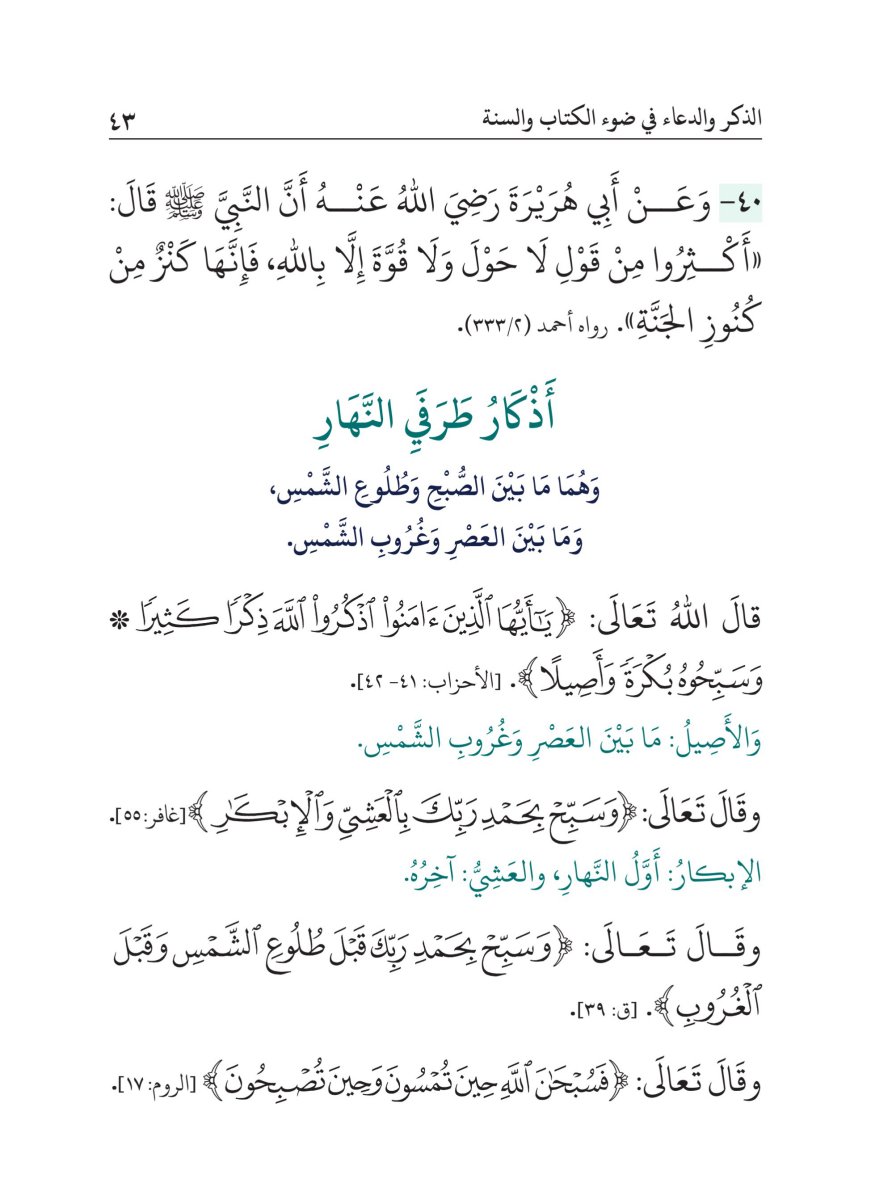 الذكر والدعاء في ضوء الكتاب والسنة ٤٣
٤٠- وَعَـــنْ أَبِي هُرَيْرَةَ رَضِيَ اللهُ عَنْـــهُ أَنَّ النَّبِيَّ ﷺ قَالَ:
«أَكْـــثِرُوا مِنْ قَوْلِ لَا حَوْلَ وَلَا قُوَّةَ إِلَّا بِاللهِ، فَإِنَّهَا كَنْزٌ مِنْ
كُنُوزِ الجَنَّةِ». رواه أحمد (٣٣٣/٢).
أَذْكَارُ طَرَفَيِ النَّهَارِ
وَهُمَا مَا بَيْنَ الصُّبْحِ وَطُلُوعِ الشَّمْسِ،
وَمَا بَيْنَ العَصْرِ وَغُرُوبِ الشَّمْسِ.
قالَ اللهُ تَعَالَى: ﴿يَٰٓأَيُّهَا ٱلَّذِينَ ءَامَنُواْ ٱذْكُرُواْ ٱللَّهَ ذِكْرٗا كَثِيرٗا *
وَسَبِّحُوهُ بُكْرَةٗ وَأَصِيلًا﴾. [الأحزاب: ٤١- ٤٢].
وَالأَصِيلُ: مَا بَيْنَ العَصْرِ وَغُرُوبِ الشَّمْسِ.
وقَالَ تَعَالَى: ﴿وَسَبِّحْ بِحَمْدِ رَبِّكَ بِٱلْعَشِيِّ وَٱلْإِبْكَٰرِ﴾ [غافر: ٥٥].
الإبكارُ: أَوَّلُ النَّهارِ، والعَشِيُّ: آخِرُهُ.
وقَـــالَ تَـعَـالَى: ﴿وَسَبِّحْ بِحَمْدِ رَبِّكَ قَبْلَ طُلُوعِ ٱلشَّمْسِ وَقَبْلَ
ٱلْغُرُوبِ﴾. [ق: ٣٩].
وقَالَ تَعَالَى: ﴿فَسُبْحَٰنَ ٱللَّهِ حِينَ تُمْسُونَ وَحِينَ تُصْبِحُونَ﴾ [الروم: ١٧].